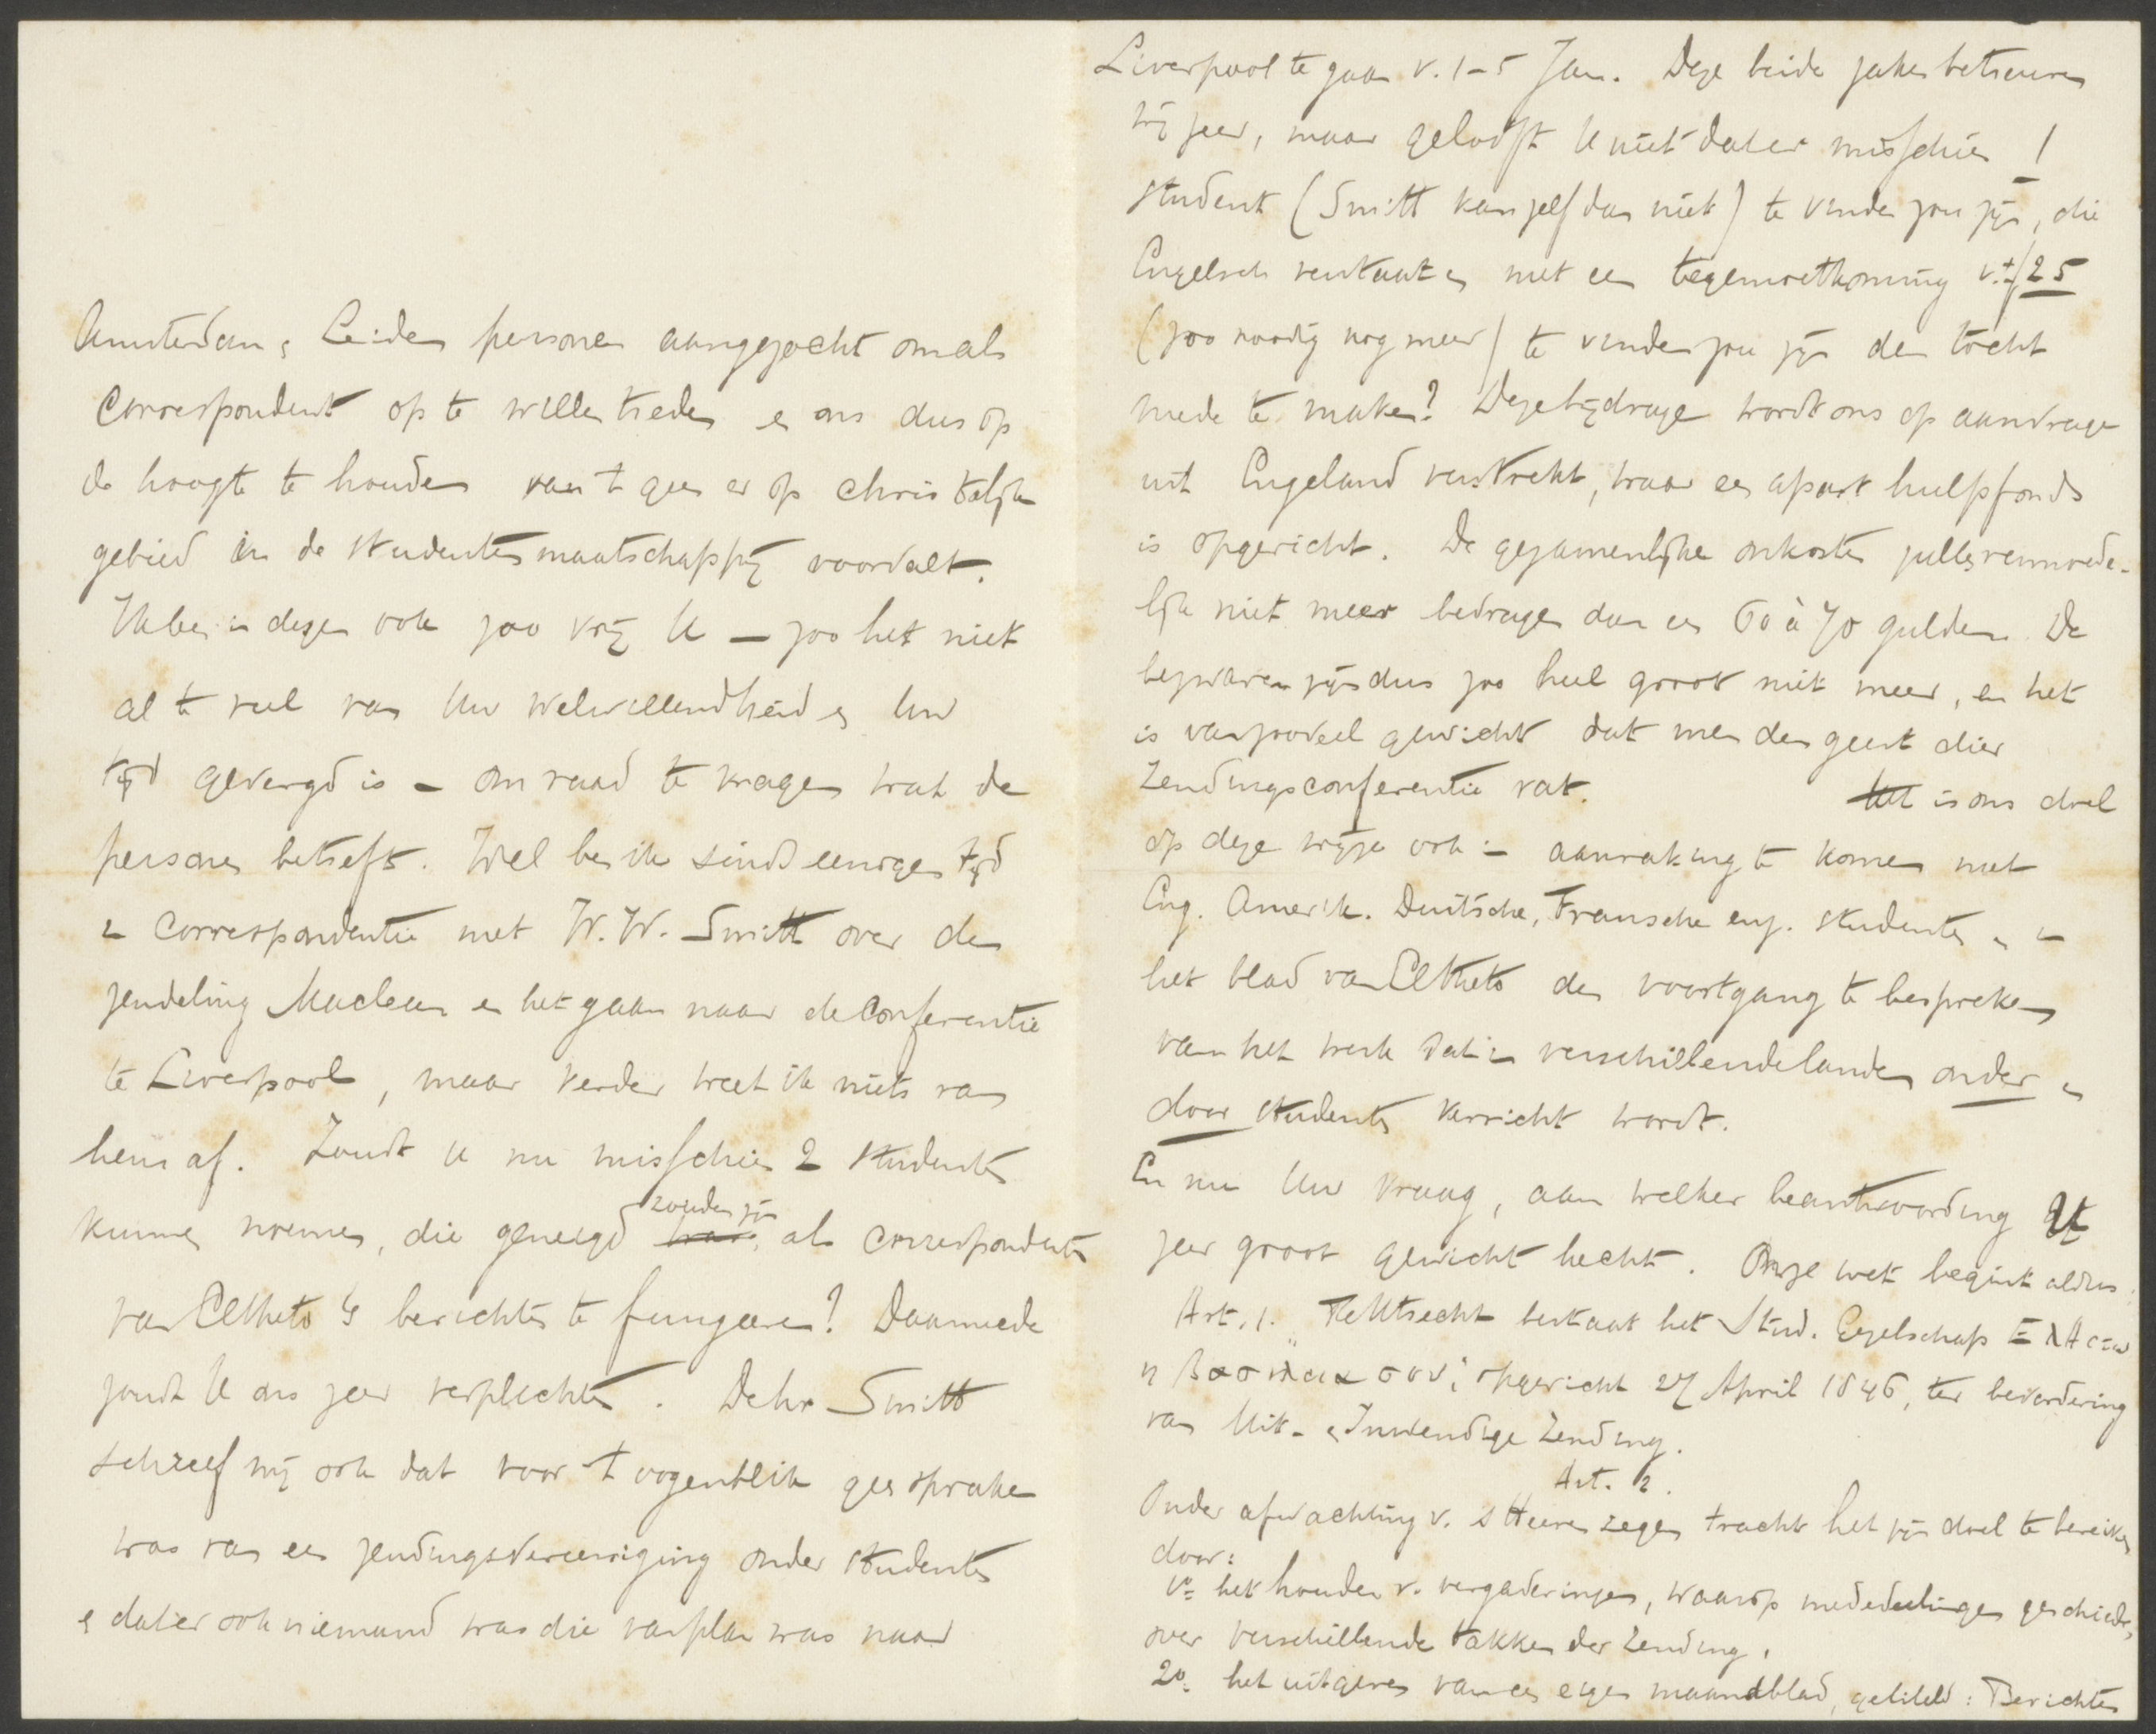 Amsterdam & Leiden personen aangezocht om als
Correspondent op te willen treden & ons dus op
de hoogte te houden van 't geen er op christelijk
gebied in de studentenmaatschappij voorvalt.
Ik ben in dezen ook zoo vrij U – zoo het niet
al te veel van Uw welwillendheid & Uw
tijd gevergd is – om raad te vragen wat de
personen betreft. Wel ben ik sinds eenigen tijd
in correspondentie met W. W. Smitt over den
zendeling Maclean en het gaan naar de Conferentie
te Liverpool, maar verder weet ik niets van
hem af. Zoudt U nu misschien 2 studenten
kunnen noemen, die geneigd zouden zijn als correspondenten
van Eltheto's berichten te fungeeren? Daarmede
zoudt U ons zeer verplichten. De hr Smitt
schreef mij ook dat voor 't oogenblik geen sprake
was van een zendingsvereeniging onder studenten
& dat er ook niemand was die van plan was naar
Liverpool te gaan v. 1–5 Jan. Deze beide zaken betreuren
wij zeer, maar gelooft U niet dat er misschien 1
student (Smitt kan zelf dan niet) te vinden zou zijn, die
Engelsch verstaat en met een tegemoetkoming v. ± f 25
(zoo noodig nog meer) te vinden zou zijn den tocht
mede te maken? Deze bijdrage wordt ons op aanvrage
uit Engeland verstrekt, waar een apart hulpfonds
is opgericht. De gezamenlijke onkosten zullen vermoede-
lijk niet meer bedragen dan een 60 à 70 gulden. De
bezwaren zijn dus zoo heel groot niet meer, en het
is van zooveel gewicht dat men den geest dier
Zendingsconferentie vat. Het is ons doel
op deze wijze ook in aanraking te komen met
Eng. Amerik. Duitsche, Fransche enz. studenten & in
het blad van Eltheto den voortgang te bespreken
van het werk dat in verschillende landen onder en
door studenten verricht wordt.
En nu Uw vraag, aan welker beantwoording U
zeer groot gewicht hecht. Onze wet begint aldus.
Art. 1. "Te Utrecht bestaat het Stud. Gezelschap ΕλΘετω
η βασιλεια σου", opgericht 27 April 1846, ter bevordering
van Uit- & Inwendige Zending.
Art. 2.
Onder afwachting v. 's Heeren zegen tracht het zijn doel te bereiken
door:
1º het houden v. vergaderingen, waarop mededeelingen geschieden,
over verschillende takken der Zending.
2º. het uitgeven van een eigen maandblad, getiteld: Berichten